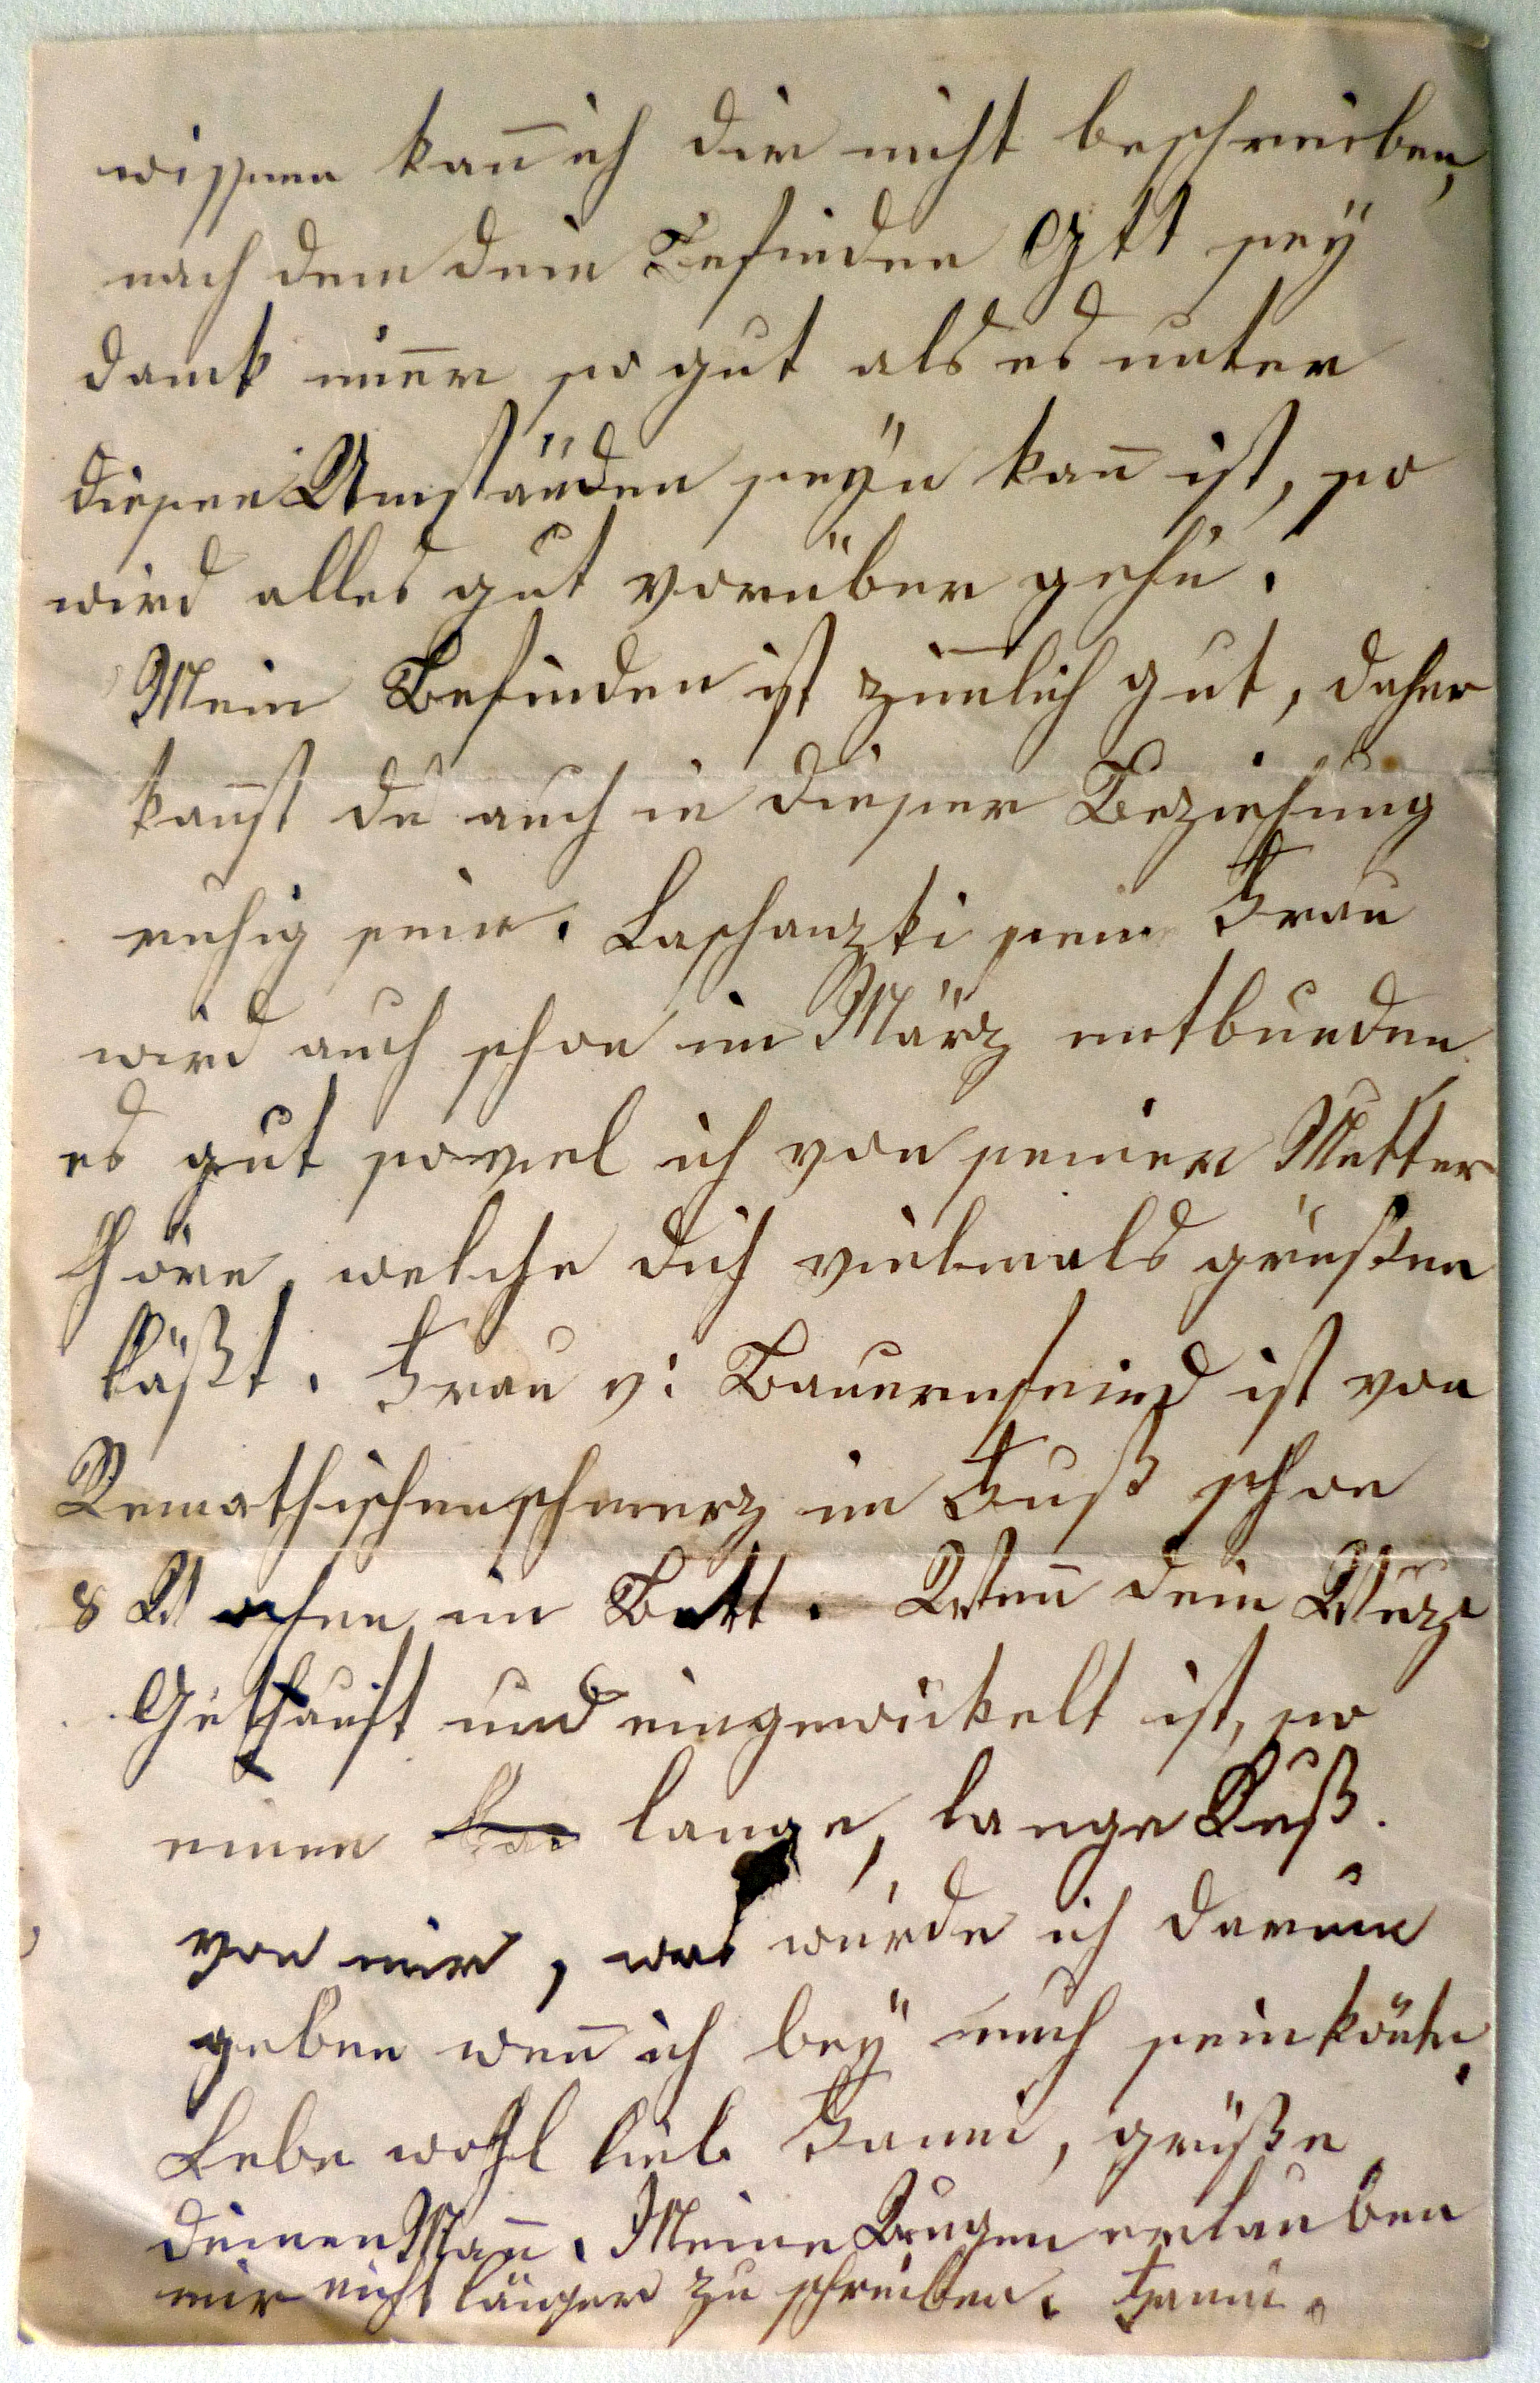 wissen kan̅ ich dir nicht beschreiben,
nach dem dein Befinden Gtt seÿ
dank im̅er so gut als es unter
diesen Umständen seÿn kan̅ ist, so
wird alles gut vorüber gehn.
Mein Befinden ist zim̅lich gut, daher
kan̅st du auch in dieser Beziehung
ruhig sein. Laschanzki seine Frau
wird auch schon im März entbunden
es gut soviel ich von seiner Mutter
höre, welche dich vielmals grüßen
läßt. Frau v: Bauernfeind ist von
Remathischenschmerz im Fuß schon
8 Wochen im Bett. Wen̅ dein
Gethauft und eingewickelt ist, so
einen lange, lange Kuß.
von mir, was würde ich darum
geben wen̅ ich beÿ euch sein kön̅te.
Lebe wohl liebe Fanni, grüße
deinen Man̅. Meine Augen erlauben
mir nicht länger zu schreiben. Fanni.